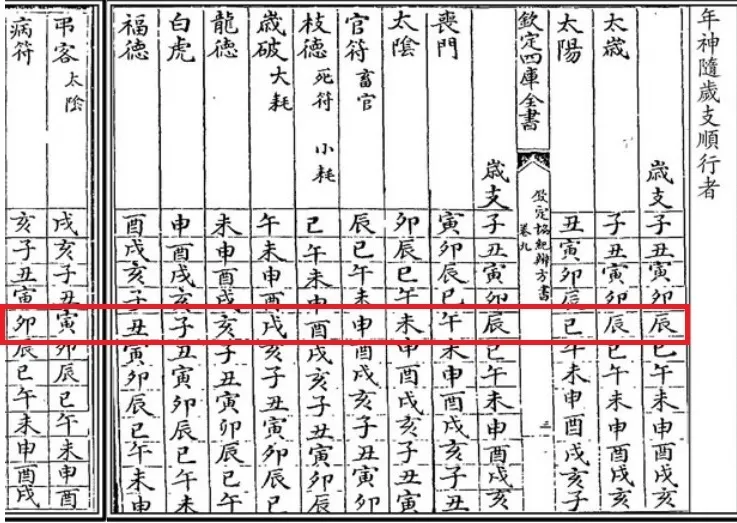 年神隨歲支順行者
歲支 子丑寅卯辰巳午未申酉戌亥
太歲 子丑寅卯辰巳午未申酉戌亥
太陽 丑寅卯辰巳午未申酉戌亥子
欽定四庫全書
欽定協紀辨方書
卷九
三
歲支 子丑寅卯辰巳午未申酉戌亥
喪門 寅卯辰巳午未申酉戌亥子丑
太陰 卯辰巳午未申酉戌亥子丑寅
官符 畜官 辰巳午未申酉戌亥子丑寅卯
枝德 死符 小耗 巳午未申酉戌亥子丑寅卯辰
歲破 大耗 午未申酉戌亥子丑寅卯辰巳
龍德 未申酉戌亥子丑寅卯辰巳午
白虎 申酉戌亥子丑寅卯辰巳午未
福德 酉戌亥子丑寅卯辰巳午未申
弔客 太陰 戌亥子丑寅卯辰巳午未申酉
病符 亥子丑寅卯辰巳午未申酉戌